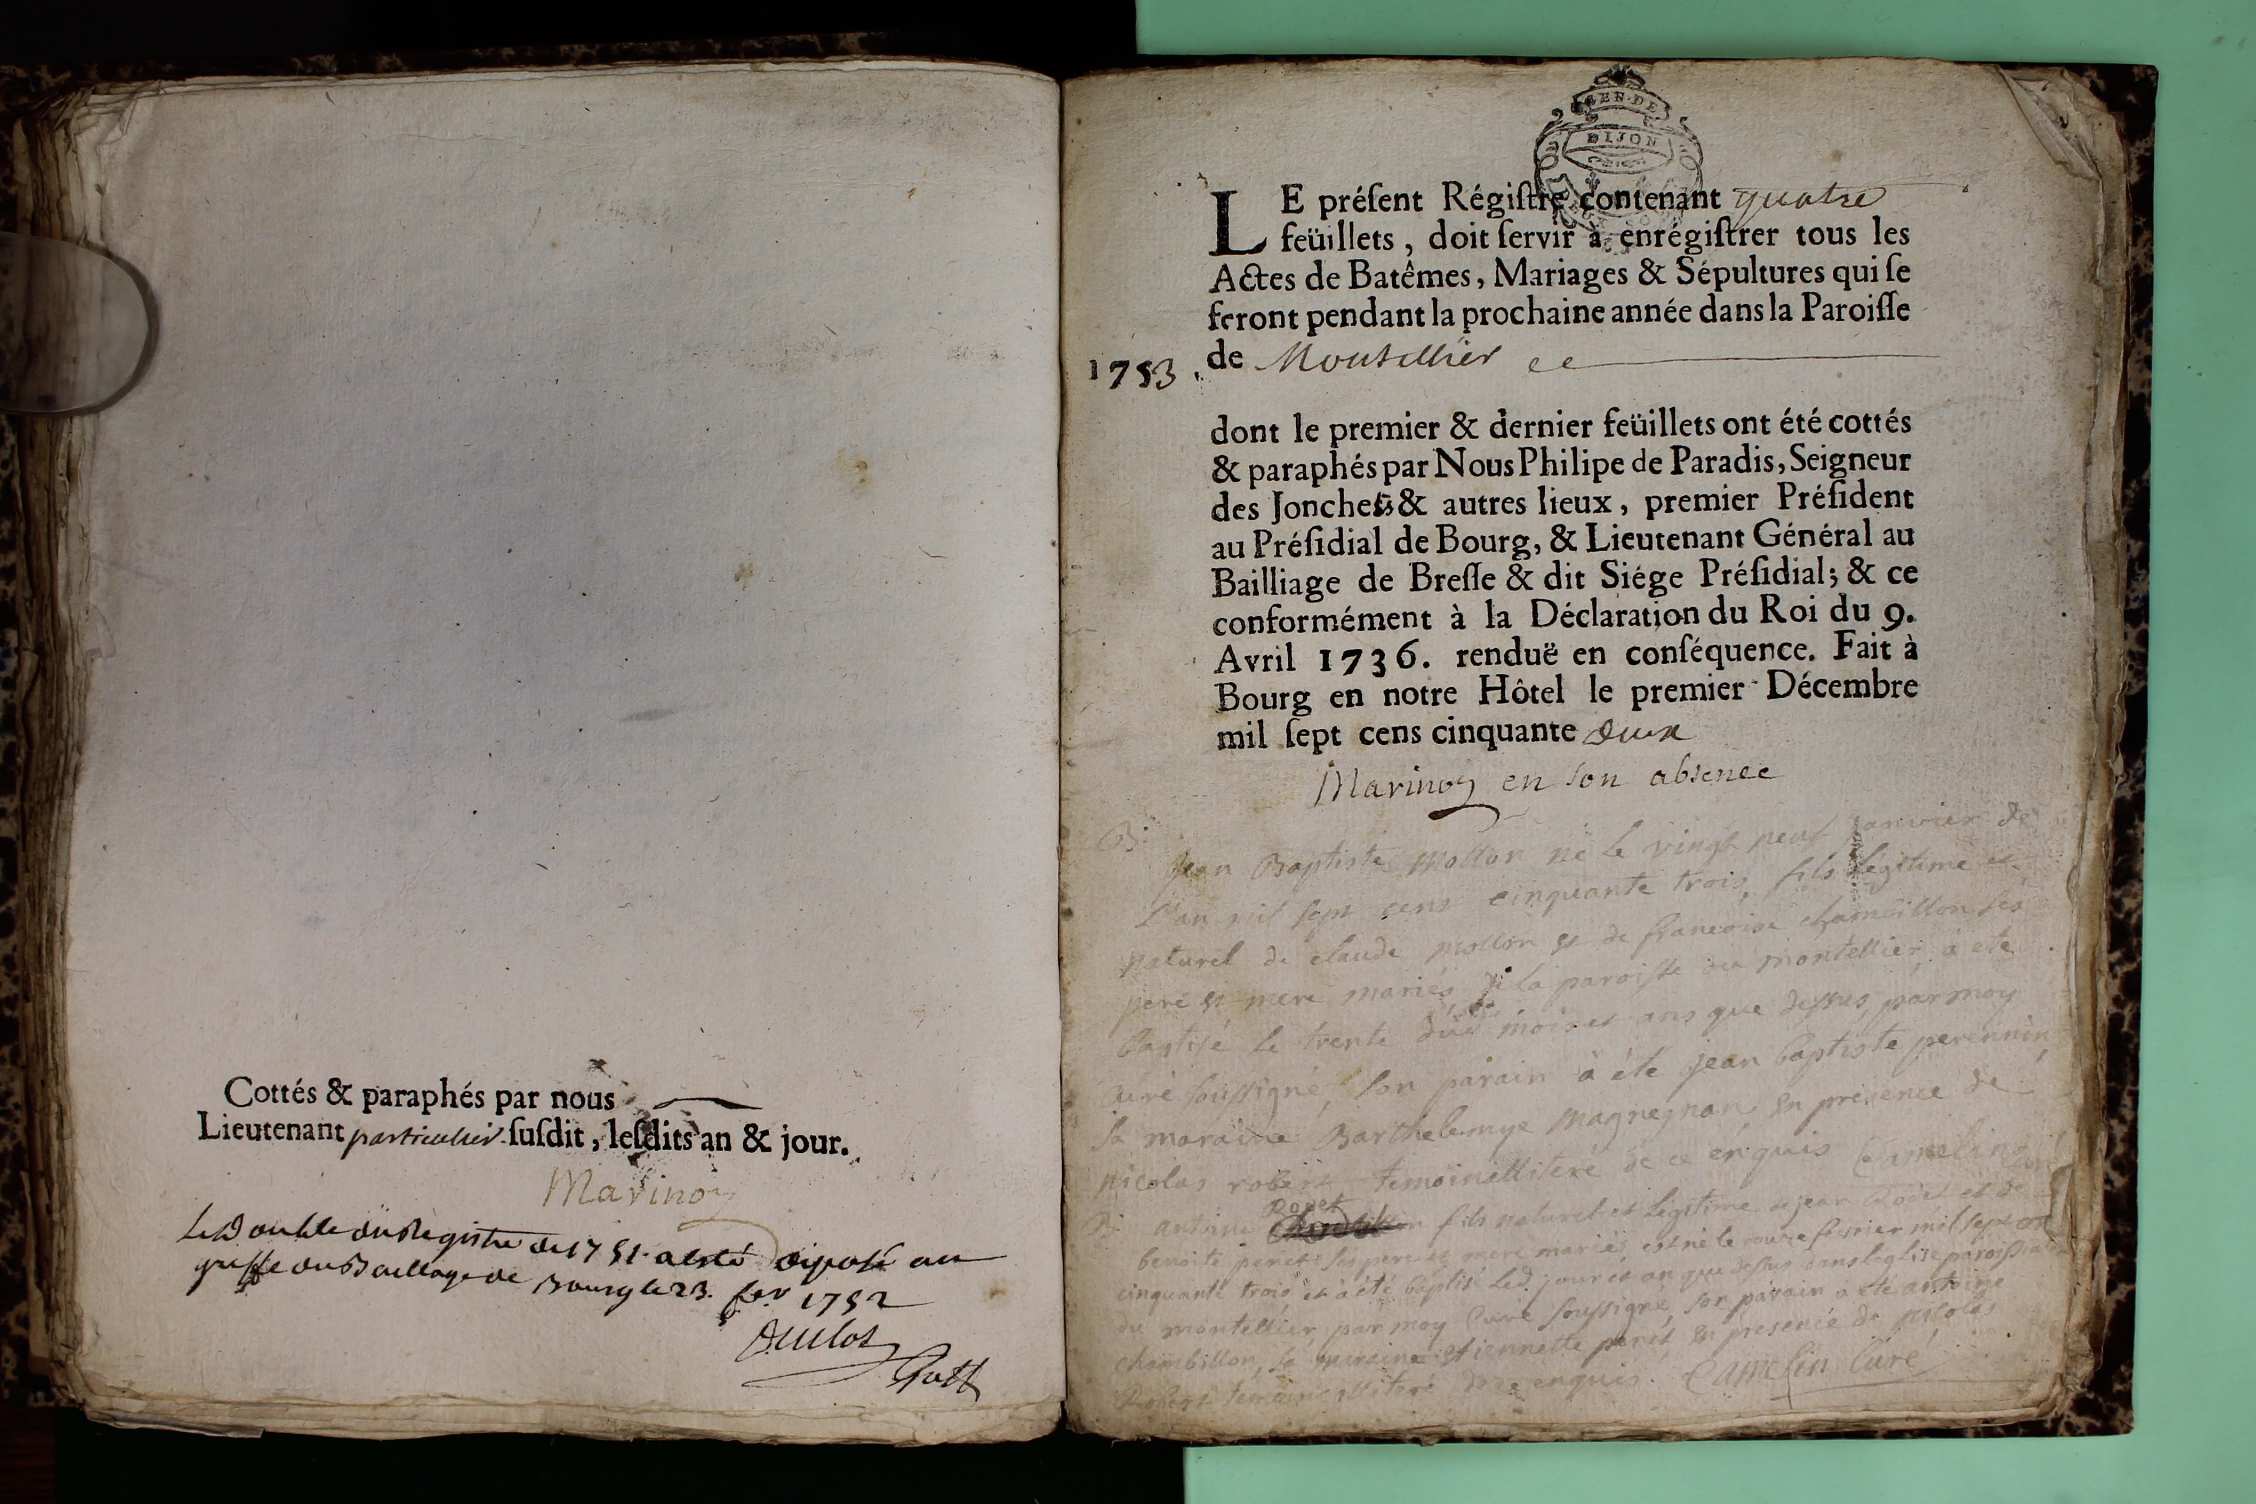 Cottés & paraphés par nous
Lieutenant particulier susdit, lesdits an & jour.
Marinoz
Le Double du Registre de 1751 a esté deposé au
greffe du Bailliage de Bourg le 23. fev 1752
GEN. DE
DIJON
LE présent Régistre contenant quatre
feüillets, doit servir à enrégistrer tous les
Actes de Batêmes, Mariages & Sépultures qui se
feront pendant la prochaine année dans la Paroisse
1753. de Montellier
dont le premier & dernier feüillets ont été cottés
& paraphés par Nous Philipe de Paradis, Seigneur
des Jonches & autres lieux, premier Président
au Présidial de Bourg, & Lieutenant Général au
Bailliage de Bresse & dit Siége Présidial; & ce
conformément à la Déclaration du Roi du 9.
Avril 1736. renduë en conséquence. Fait à
Bourg en notre Hôtel le premier Décembre
mil sept cens cinquante deux
Marinoz en son absence
B. Jean Baptiste Mollon né le vingt neuf janvier de
L'an mil sept cens cinquante trois, fils legitime et
naturel de claude mollon et de francoise chambillon ses
pere et mere mariés de la paroisse du montellier a été
baptisé le trente dud mois et ans que dessus, par moy
curé soussigné, son parain a été jean baptiste perennin
sa maraine Barthelemye magnegnan en presence de
nicolas robert temoin illiteré de ce enquis Camelin curé
B. antoine Rodet fils naturel et legitime de jean Rodet et de
benoite peret ses pere et mere mariés, est né le fevrier mil sept cent
cinquante trois et a été baptisé led. jour et an que dessus dans l'eglise paroissiale
du montellier par moy Curé soussigné, son parain a été antoine
chambillon, sa maraine etiennette peret en presence de nicolas
Robert temoin illiteré de ce enquis. Camelin Curé